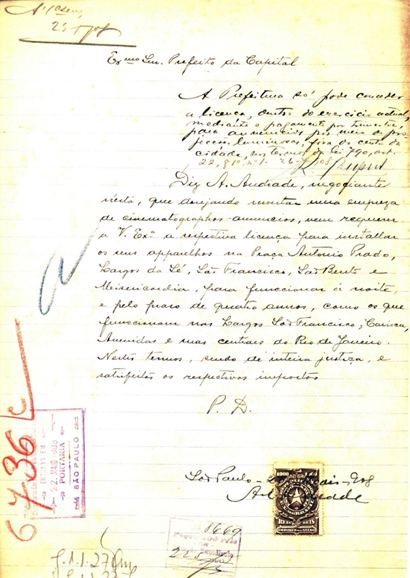 Exmo Snr. Prefeito da Capital
A Prefeitura só pode conceder
a licença, dentro do exercicio actual,
mediante o pagamento por trimestre,
para annuncios por meio de pro
jecções luminosas, fóra do centro da
cidade, nos termos da lei 790, art.
22, § 1º
Diz A. Andrade, negociante
nesta, que desejando montar uma empreza
de cinematographos-annuncios, vem requerer
a V. Exª a respectiva licença para installar
os seus apparelhos na Praça Antonio Prado,
Largos da Sé, São Francisco, São Bento e
Misericordia, para funccionar á noite,
e pelo praso de quatro annos, como os que
funccionam nos Largos São Francisco, Carioca,
Avenidas e ruas centraes do Rio de Janeiro.
Nestes termos, sendo de inteira justiça, e
satisfeitos os respectivos impostos
P. D.
São Paulo
6736
PORTARIA
SÃO PAULO